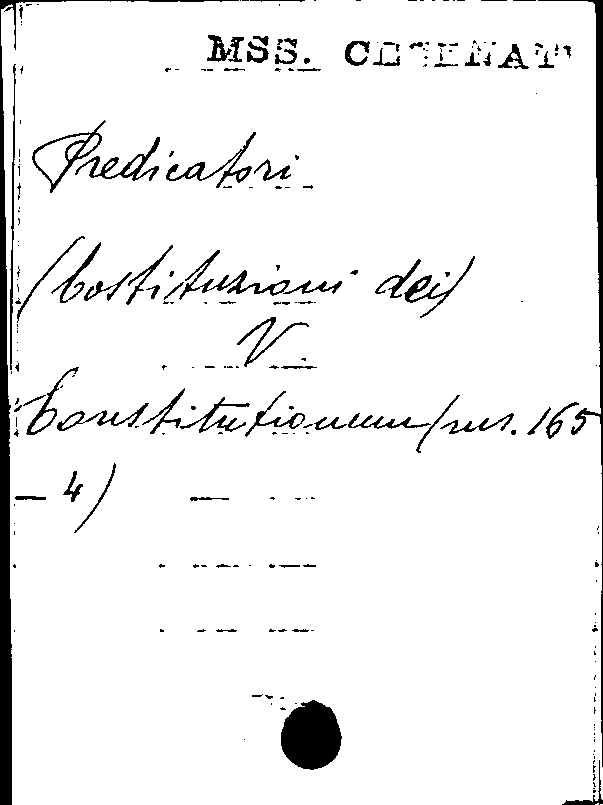 MSS. CESENATI
Predicatori
(Costituzioni dei)
V
Constitutionum (ms. 165
- 4)